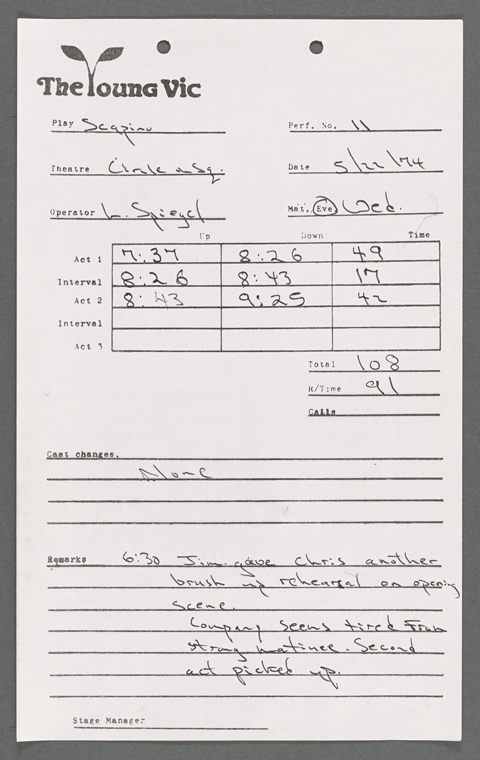 The Young Vic
Play Scapino
Perf. No. 11
Theatre Circle in Sq.
Date 5/22/74
Operator L. Spiegel
Mat. Eve Wed.
Up Down Time
Act 1 7:37 8:26 49
Interval 8:26 8:43 17
Act 2 8:43 9:25 42
Interval
Act 3
Total 108
H/Time 91
Calls
Cast changes.
None
Remarks 6:30 Jim gave Chris another
brush up rehearsal on opening
scene.
Company seems tired from
strong matinee. Second
act picked up.
Stage Manager